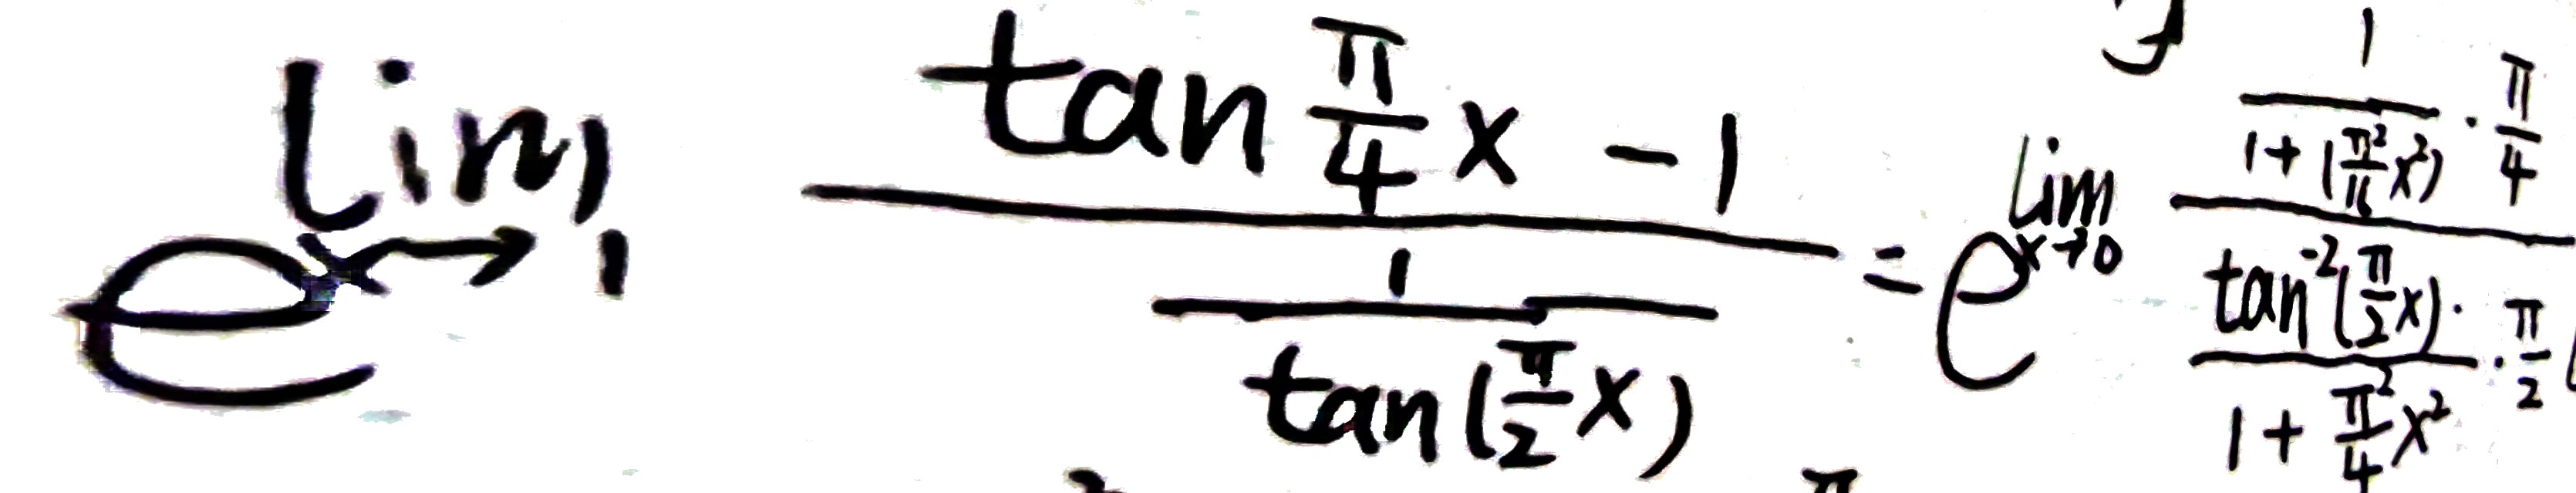 e^{\lim_{x \to 1} \frac{\tan \frac{\pi}{4} x - 1}{\frac{1}{\tan(\frac{\pi}{2} x)}}} = e^{\lim_{x \to 0} \frac{\frac{1}{1 + (\frac{\pi^2}{16} x^2)} \cdot \frac{\pi}{4}}{\frac{\tan^{-2}(\frac{\pi}{2} x) \cdot}{1 + \frac{\pi^2}{4} x^2} \cdot \frac{\pi}{2}}}